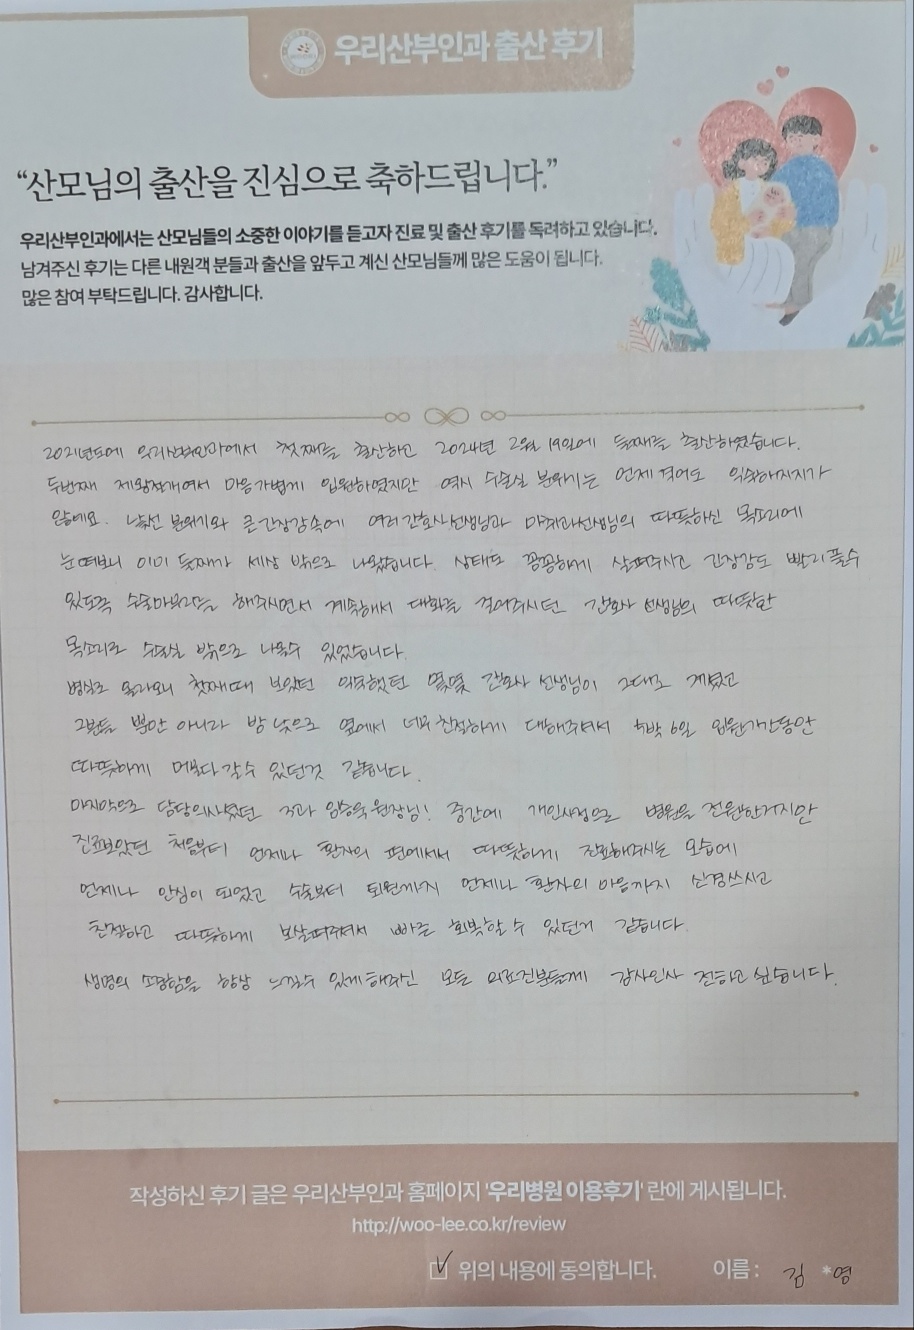 우리산부인과 출산 후기
“산모님의 출산을 진심으로 축하드립니다.”
우리산부인과에서는 산모님들의 소중한 이야기를 듣고자 진료 및 출산 후기를 독려하고 있습니다.
남겨주신 후기는 다른 내원객 분들과 출산을 앞두고 계신 산모님들께 많은 도움이 됩니다.
많은 참여 부탁드립니다. 감사합니다.
2021년도에 우리산부인과에서 첫째를 출산하고 2024년 2월 19일에 둘째를 출산하였습니다.
두번째 제왕절개여서 마음가볍게 입원하였지만 역시 수술실 분위기는 언제 겪어도 익숙해지지가
않네요. 낯선 분위기와 큰 긴장감속에 여러 간호사선생님과 마취과선생님의 따뜻하신 목소리에
눈떠보니 이미 둘째가 세상 밖으로 나왔습니다. 상태도 꼼꼼하게 살펴주시고 긴장감도 빨리 풀수
있도록 수술마무리를 해주시면서 계속해서 대화를 걸어주시던 간호사 선생님의 따뜻한
목소리로 수술실 밖으로 나올수 있었습니다.
병실로 올라오니 첫째때 보았던 익숙했던 몇몇 간호사 선생님이 그대로 계셨고
그분들 뿐만 아니라 밤 낮으로 옆에서 너무 친절하게 대해주셔서 5박 6일 입원기간동안
따뜻하게 머물다 갈수 있던것 같습니다.
마지막으로 담당의사셨던 3과 임승욱 원장님! 중간에 개인사정으로 병원을 전원한거지만
진료보았던 처음부터 언제나 환자의 편에서서 따뜻하게 진료해주시는 모습에
언제나 안심이 되었고 수술부터 퇴원까지 언제나 환자의 마음까지 신경쓰시고
친절하고 따뜻하게 보살펴주셔서 빠른 회복할 수 있던거 같습니다.
생명의 소중함을 항상 느낄수 있게 해주신 모든 의료진분들께 감사인사 전하고 싶습니다.
작성하신 후기 글은 우리산부인과 홈페이지 '우리병원 이용후기' 란에 게시됩니다.
http://woo-lee.co.kr/review
위의 내용에 동의합니다. 이름 : 김 *영